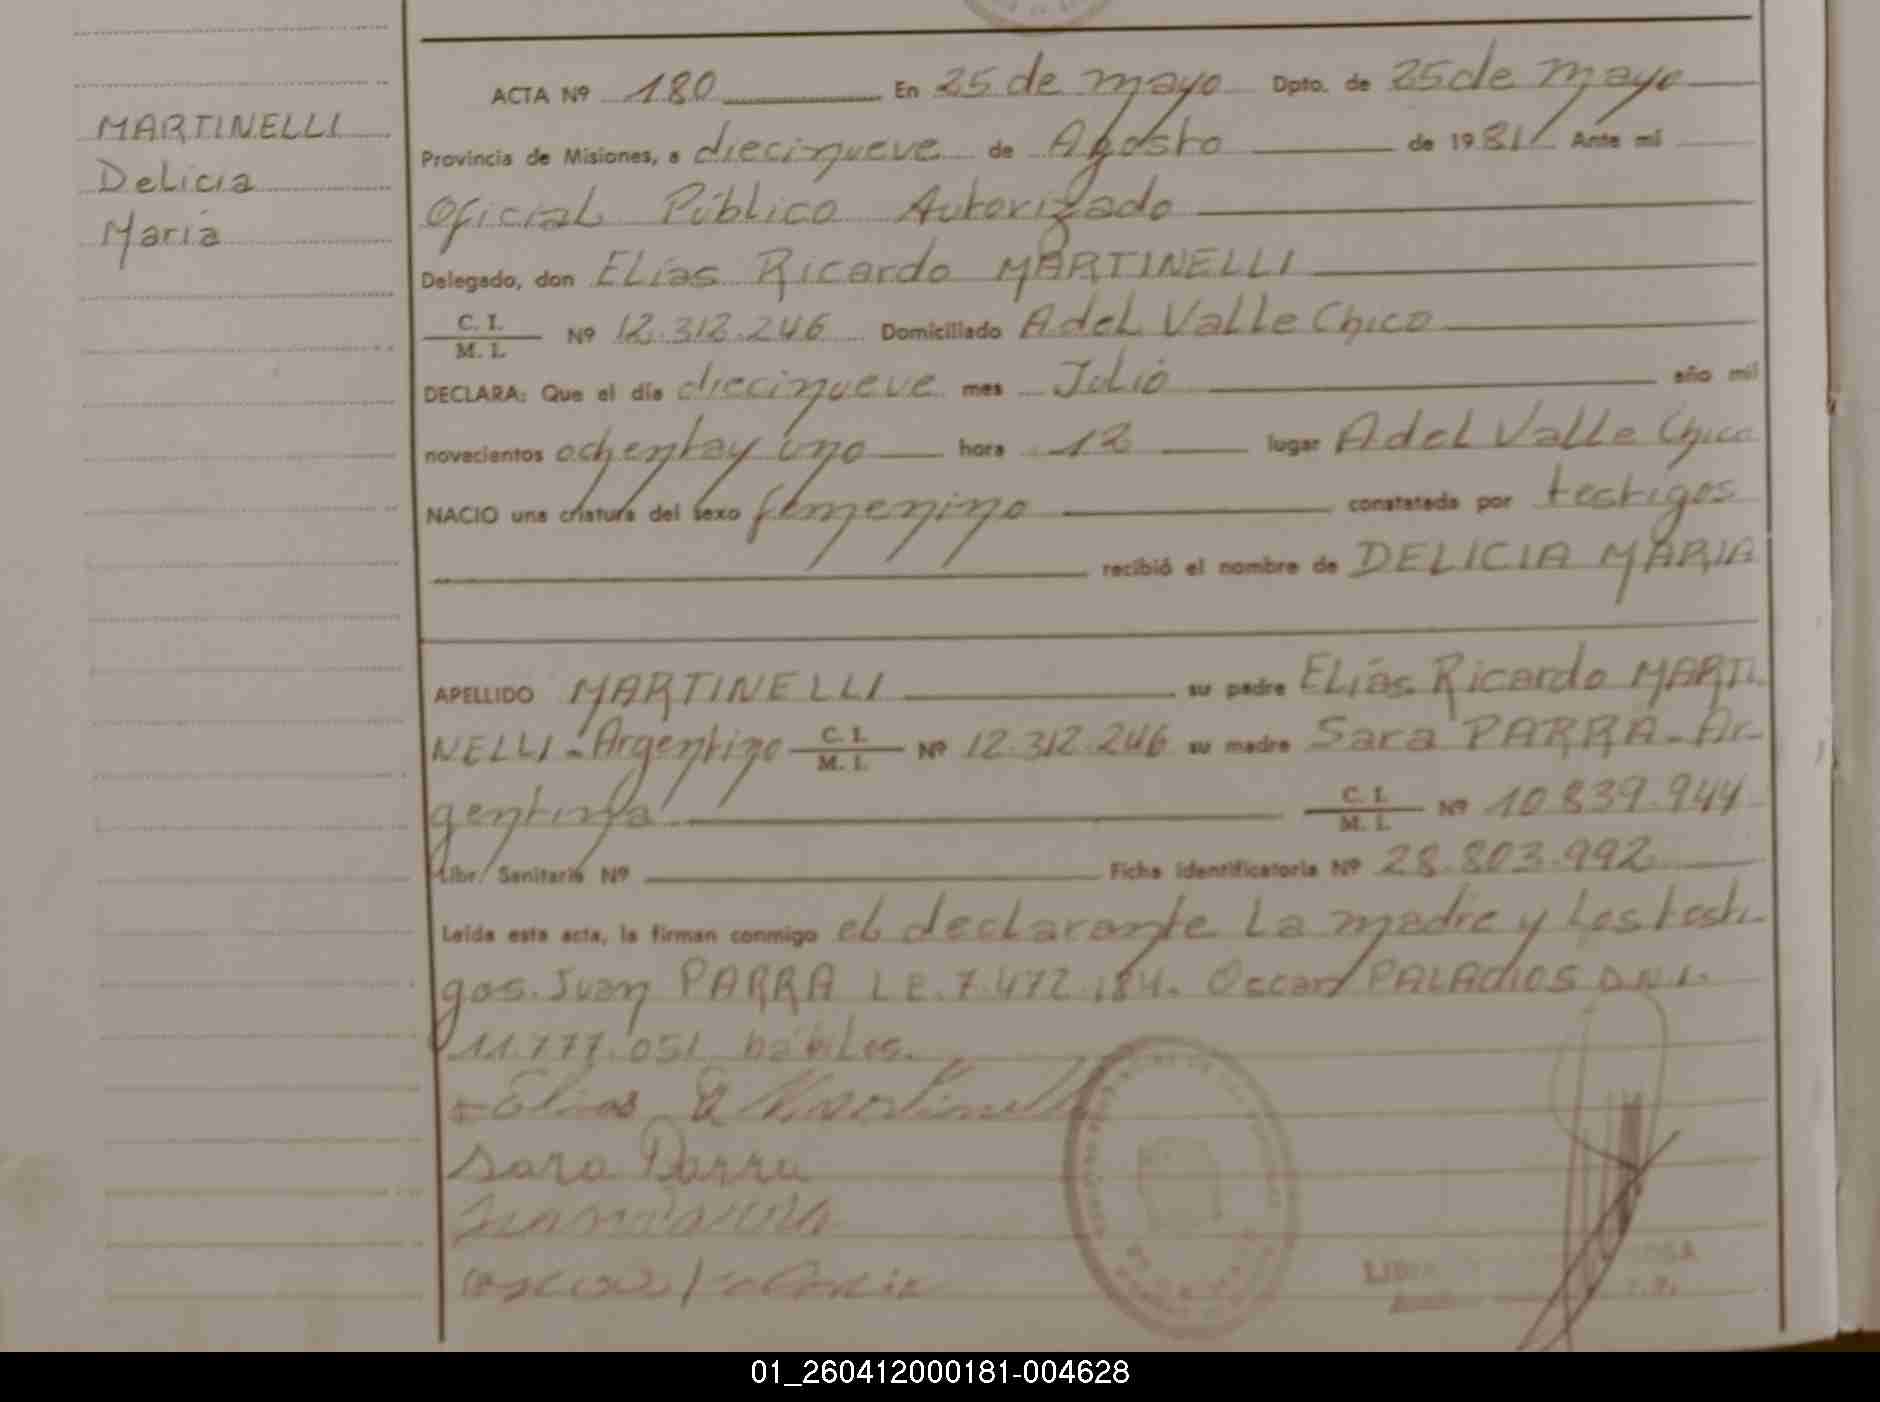 MARTINELLI
Delicia
Maria
ACTA Nº 180 En 25 de mayo Dpto. de 25 de mayo
Provincia de Misiones, a diecinueve de Agosto de 1981 Ante mí
Oficial Público Autorizado
Delegado, don Elías Ricardo MARTINELLI
C. I. / M. I. Nº 12.312.246 Domiciliado A del Valle Chico
DECLARA: Que el día diecinueve mes Julio año mil
novecientos ochenta y uno hora 12 lugar A del Valle Chico
NACIO una criatura del sexo femenino constatada por testigos
recibió el nombre de DELICIA MARIA
APELLIDO MARTINELLI su padre Elías Ricardo MARTI
NELLI - Argentino C. I. / M. I. Nº 12.312.246 su madre Sara PARRA - Ar-
gentina C. I. / M. I. Nº 10.839.944
Libr. Sanitaria Nº Ficha identificatoria Nº 28.803.992
Leída esta acta, la firman conmigo el declarante la madre y los testi-
gos. Juan PARRA L.E. 7.472.184. Oscar PALACIOS D.N.I.
11.777.051 hábiles.
Elias R Martinelli
Sara Parra
Juan Parra
01_260412000181-004628